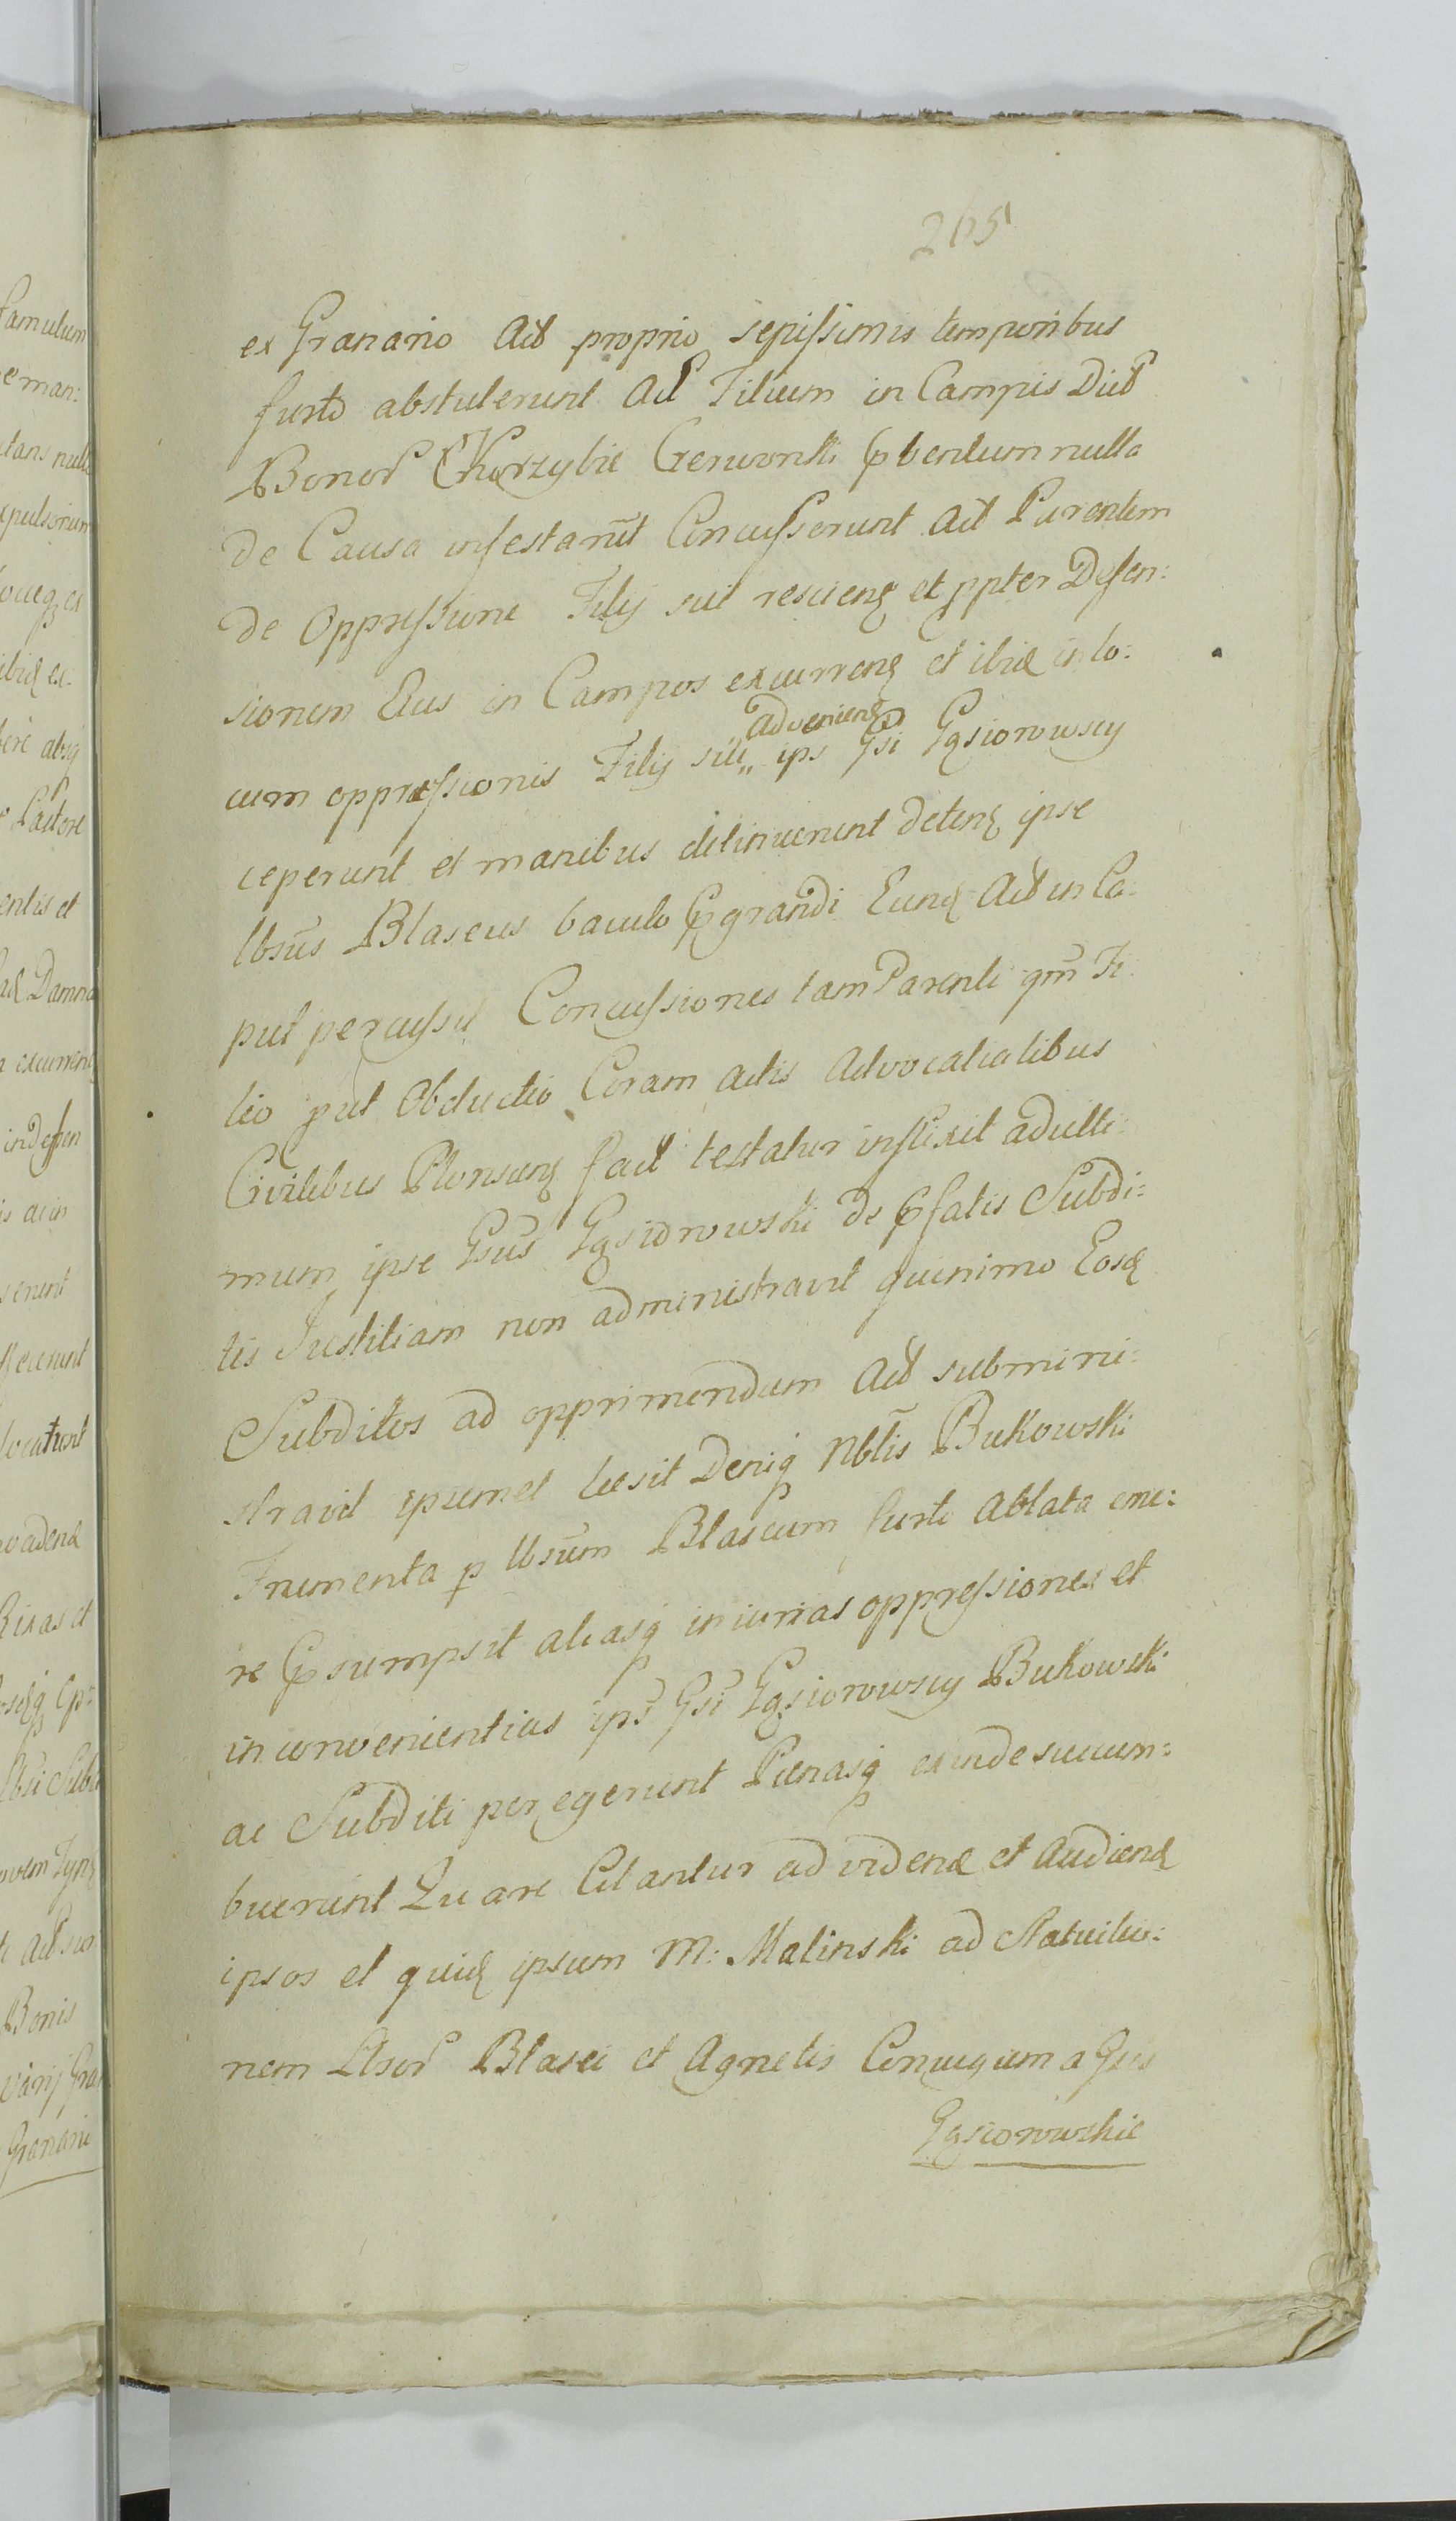 265
ex Granario Act proprio sepissimis temporibus
furto abstulerunt Act Filium in Campis Dict
Bonor Chorzybie Gerwonki  nulla
de Causa infestarūt Concusserunt Act Parentem
de Oppressione Filij sui resciens et ppter Defen:
sionem Eius in Campos excurrens et ibid in lo:
adveniens
cum oppressionis Filij sui„ ips Gsi Gąsiorowscy
ceperunt et manibus detinuerunt detens ipse
lbsus Blaseus baculo pgrandi Eund Act in Ca:
put percussit Concussiones tam Parenti qm Fi
lio put Obductio Coram actis Advocatialibus
Civilibus Plonscens fact testatur inflixit adulti:
mum ipse Gsus Gąsiorowski de pfatis Subdi:
tis Justitiam non administravit quinimo Eosd
Subditos ad opprimendum Act submini:
stravit ipsemet  Deniq Nbtis Bukowski
Frumenta p lbsum Blaseum furto ablata eme:
re psumpsit aliasq iniurias oppressiones et
inconvenientias ips Gsi Gąsiorowscy Bukowski
ac Subditi peregerunt Penasq exinde succum:
buerunt Quare Citantur ad vidend et Audiend
ipsos et quid ipsum M: Malinski ad Statuitio:
nem Lbsor Blasei et Agnetis Coniugum a Gsis
Gąsiorowskie
famulum
eman:
tans nulla
pulsorium
ibid ex:
Pastore
entis et
Damna
excurrens
in defen
is ac in
vadend
Rixas et
Bonis
varij Gra
Granarii